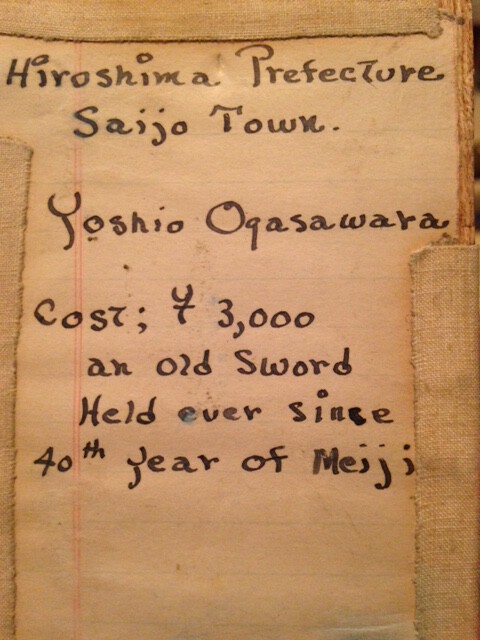 Hiroshima Prefecture
Saijo Town.
Yoshio Ogasawara
Cost; ¥ 3,000
an old Sword
Held ever since
40th year of Meiji